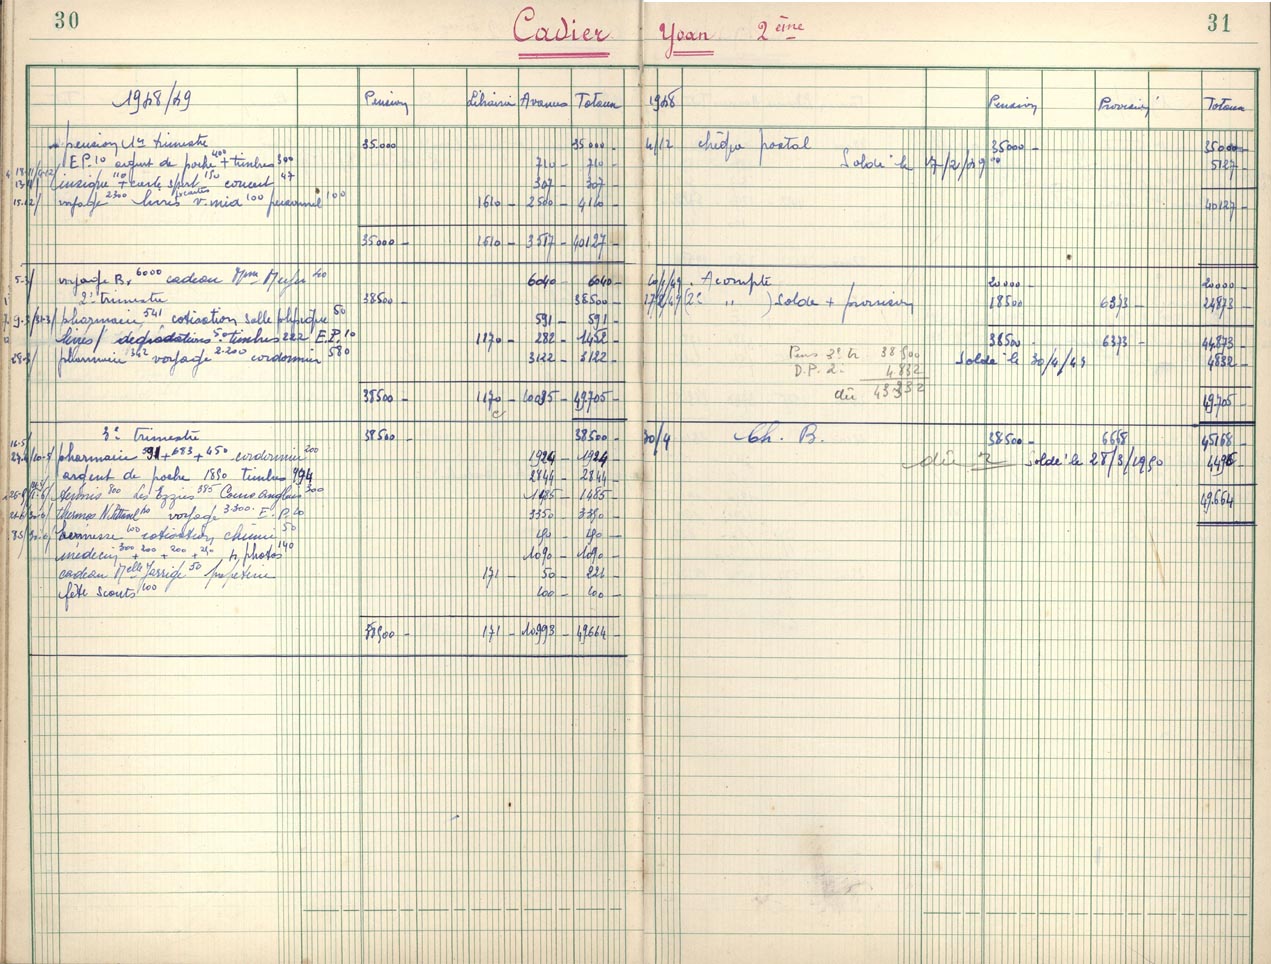 30
Cadier Yvan 2ème
31
1948/49 Pension Librairie Avances Totaux
pension 1er trimestre 35.000 35000 -
E.P. 10 argent de poche 400 + timbres 300 710 - 710 -
insigne 110 + carte sport 150 concert 47 307 - 307 -
15.12/ voyage 2300 livres v. mid 100 personnel 100 1610 - 2500 - 4110 -
35000 - 1610 - 3517 - 40127 -
5-3/ voyage Br 6000 cadeau 40 6040 - 6040 -
2e trimestre 38500 - 38500 -
pharmacie 541 cotisation salle physique 50 591 - 591 -
livres / dégradations 50 timbres 222 E.P. 10 1170 - 282 - 1452 -
28-3/ pharmacie 342 voyage 2.200 cordonnier 580 3122 - 3122 -
38500 - 1170 - 10035 - 49.705 -
3e trimestre 38500 - 38500 -
pharmacie 591 + 683 + 450 cordonnier 200 1924 - 1924 -
argent de poche 1850 timbres 994 2844 - 2844 -
tennis 800 Les Eyzies 385 Cours anglais 300 1485 - 1485 -
voyage 3.300 E.P. 10 3350 - 3350 -
kermesse 100 cotisation chimie 50
médecin 300 + 200 + 200 + 250 photos 140 1090 - 1090 -
cadeau Melle 50 papeterie 171 - 50 - 221 -
fête scouts 100 100 - 100 -
38500 - 171 - 10.993 - 49664 -
1948 Pension Provision Totaux
4/12 chèque postal 35000 - 35000 -
Soldé le 17/2/49 5127 -
40127 -
Acompte 20000 - 20000 -
(2e " ) Solde + provision 18500 6373 - 24873 -
38500 - 6373 - 44.873 -
Pens 3e tr 38500
Soldé le 30/4/49 4832 -
D.P. 2e 4.832
dû 43332
49.705 -
30/4 Ch. B. 38500 - 6668 45168 -
dû Soldé le 28/3/1950 4496 -
49.664 -